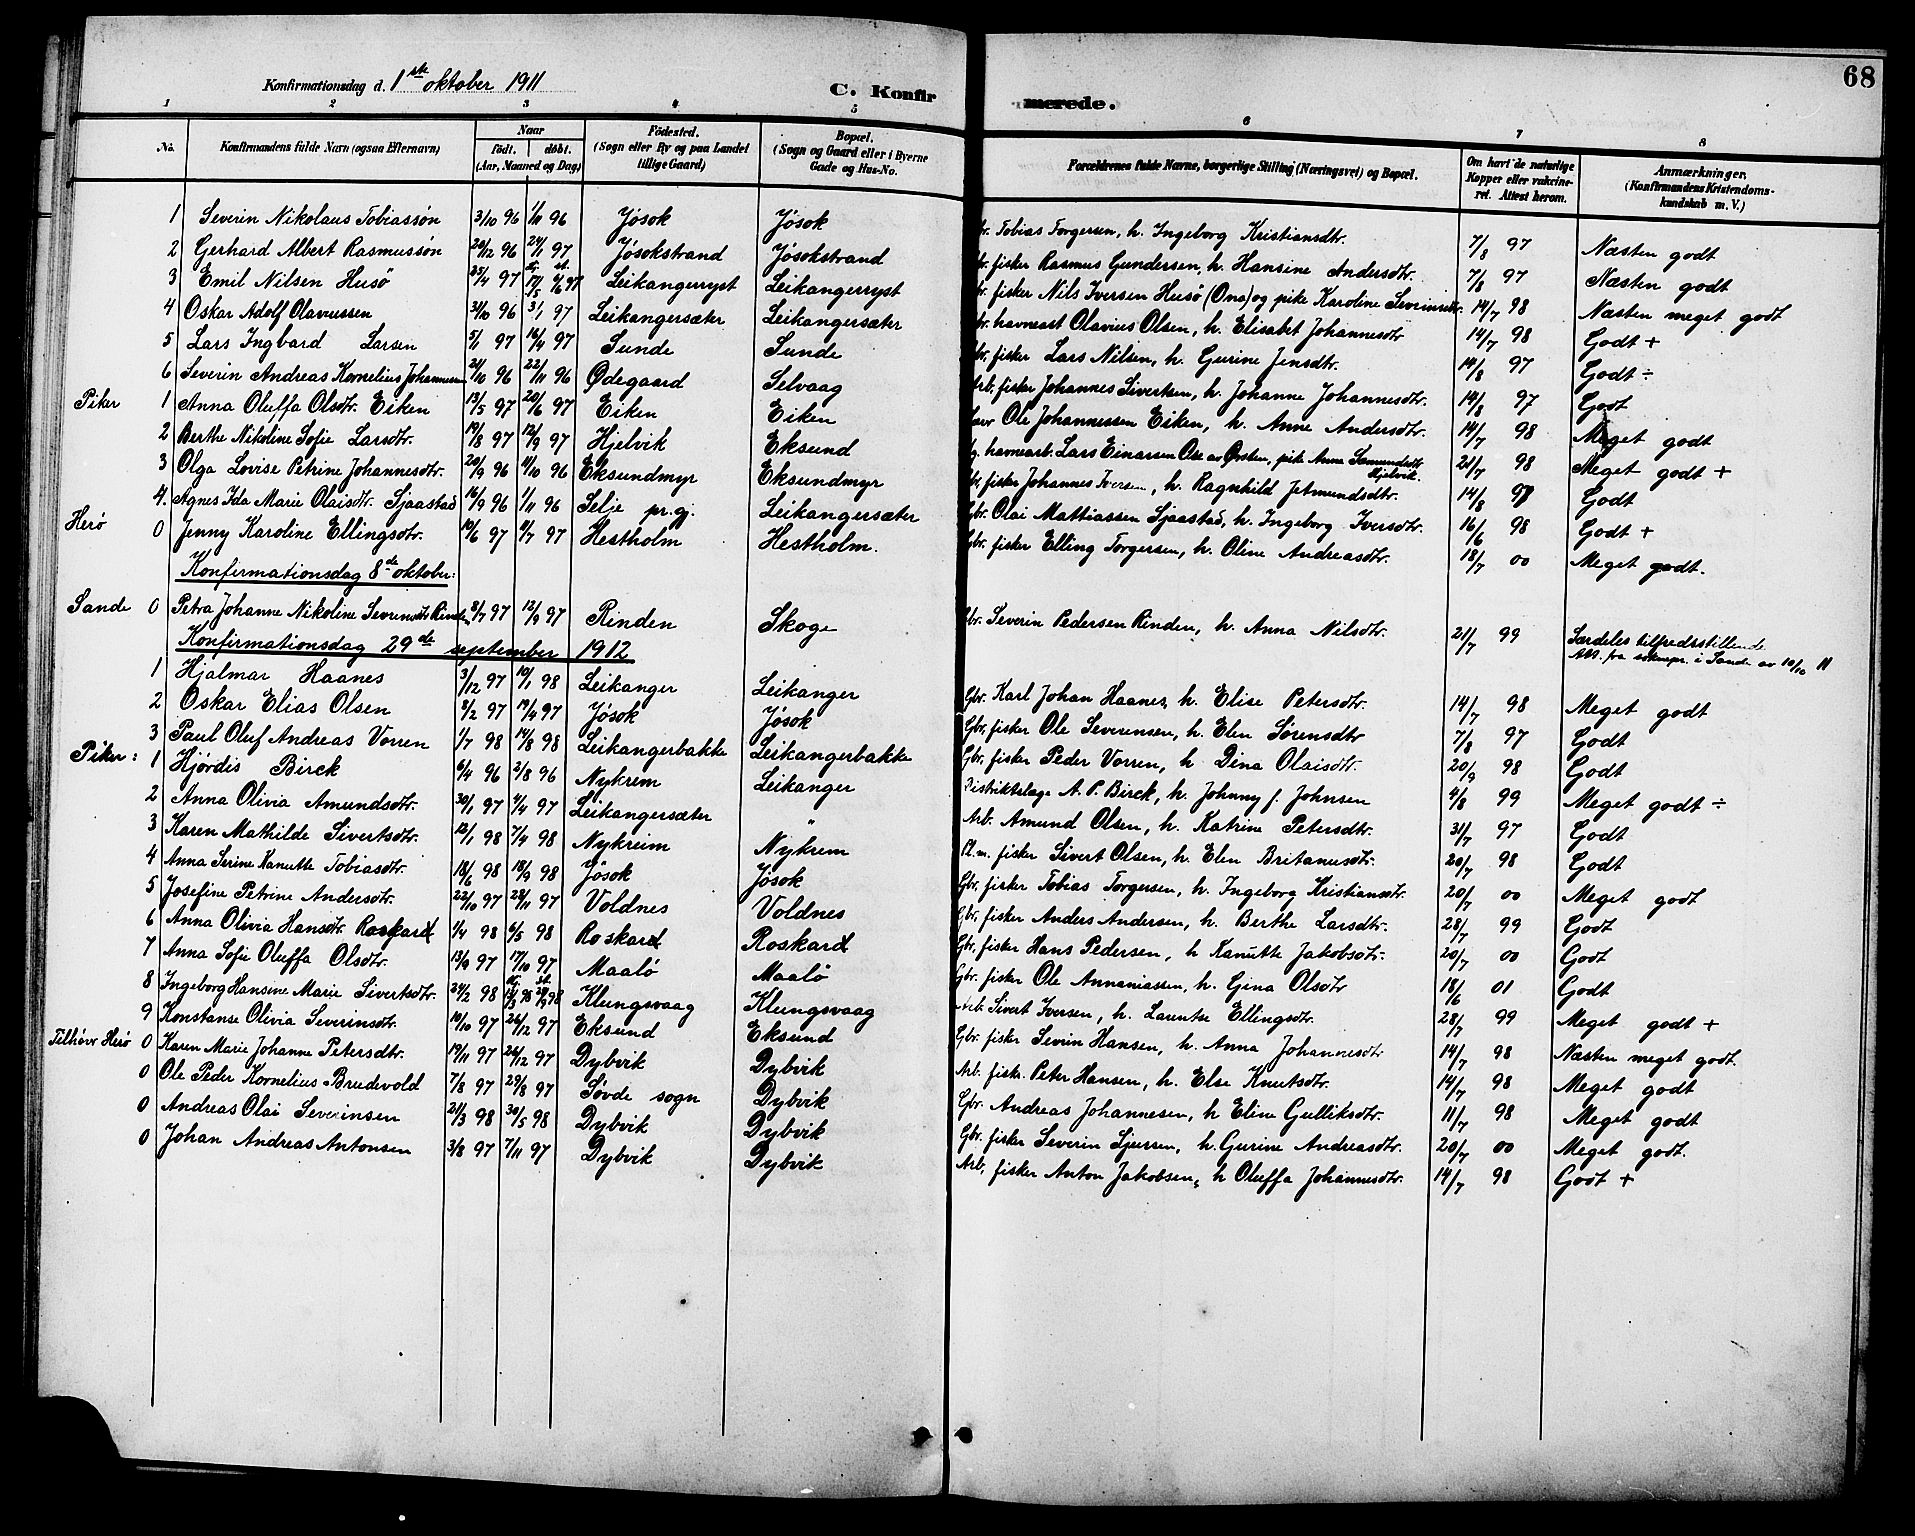 68
Konfirmationsdag d. 1ste oktober 1911 C. Konfirmerede.
1 2 3 4 5 6 7 8
No. Konfirmandens fulde Navn (ogsaa Efternavn) Naar födt. döbt. (Aar, Maaned og Dag) Födested. (Sogn eller By og paa Landet tillige Gaard) Bopæl. (Sogn og Gaard eller i Byerne Gade og Hus-No. Forældrenes fulde Navne, borgerlige Stilling (Næringsvei) og Bopæl. Om havt de naturlige Kopper eller vakcineret. Attest herom. Anmærkninger. (Konfirmandens Kristendomskundskab m. V.)
1 Severin Nikolaus Tobiassøn 3/10 96 1/11 96 Jøsok Jøsok Gbr. Tobias Torgersen, h. Ingeborg Kristiansdtr. 7/8 97 Næsten godt
2 Gerhard Albert Rasmussøn 20/12 96 24/1 97 Jøsokstrand Jøsokstrand Gbr. fisker Rasmus Gundersen, h. Hansine Andersdtr. 7/8 97 Næsten godt
3 Emil Nilsen Husø 25/4 97 Leikangerryst Leikangerryst Gbr. fisker Nils Iversen Husø (Ona) og pike Karoline Severinsdtr. 14/7 98 Næsten meget godt
4 Oskar Adolf Olaviussen 31/10 96 3/1 97 Leikangersæter Leikangersæter Gbr. havnearb. Olavius Olsen, h. Elisabet Johannesdtr 14/7 98 Godt +
5 Lars Ingbard Larsen 5/1 97 16/4 97 Sunde Sunde Gbr. fisker Lars Nilsen, h. Gurine Jensdtr. 14/8 97 Godt ÷
6 Severin Andreas Kornelius Johannesen 21/10 96 22/11 96 Ødegaard Selvaag Arb. fisker Johannes Sivertsen, h. Johanne Johannesdtr. 14/8 97 Godt
Piker 1 Anna Oluffa Olsdtr. Eiken 13/5 97 20/6 97 Eiken Eiken Ole Johannessen Eiken, h. Anne Andersdtr. 14/7 98 Meget godt
2 Berthe Nikoline Sofie Larsdtr. 19/8 97 12/9 97 Hjelvik Eksund havnearb. Lars Einarsen Ose av Ørsten, pike Anne Samundsdtr Hjelvik. 21/7 98 Meget godt +
3 Olga Lovise Petrine Johannesdtr. 20/9 96 4/10 96 Eksundmyr Eksundmyr Gbr. fisker Johannes Iversen, h. Ragnhild Jetmundsdtr. 14/8 97 Godt
4. Agnes Ida Marie Olaisdtr. Sjaastad 16/9 96 1/11 96 Selje pr.gj. Leikangersæter Gbr. Olai Mattiassen Sjaastad, h. Ingeborg Iversdtr. 16/6 98 Godt +
Herø 0 Jenny Karoline Ellingsdtr. 19/6 97 4/7 97 Hestholm Hestholm. Gbr. fisker Elling Torgersen, h. Oline Andreasdtr. 18/7 00 Meget godt.
Konfirmationsdag 8de oktober:
Sande 0 Petra Johanne Nikoline Severinsdtr Rinden 3/7 97 12/9 97 Rinden Skoge Gbr. Severin Pedersen Rinden, h. Anna Nilsdtr. 21/7 99 Særdeles tilfredsstillende
Att. fra soknepr. i Sande av 10/10 11
Konfirmationsdag 29de september 1912
1 Hjalmar Haanes 3/12 97 10/1 98 Leikanger Leikanger Gbr. Karl Johan Haanes, h. Elise Petersdtr. 14/7 98 Meget godt
2 Oskar Elias Olsen 8/2 97 19/4 97 Jøsok Jøsok Gbr. fisker Ole Severensen, h. Elen Sørensdtr 7/8 97 Godt
3 Paul Oluf Andreas Vorren 1/7 98 14/8 98 Leikangerbakke Leikangerbakke Gbr. fisker Peder Vorren, h. Dina Olaisdtr. 20/9 98 Godt
Piker: 1 Hjørdis Birck 6/4 96 2/8 96 Nykrem Leikanger Distriktslæge A. P. Birck, h. Johnny f. Johnsen 4/8 99 Meget godt ÷
2 Anna Olivia Amundsdtr. 30/1 97 4/4 97 Leikangersæter " Arb. Amund Olsen, h. Katrine Petersdtr. 31/7 97 Godt
3 Karen Mathilde Sivertsdtr. 12/1 98 7/4 98 Nykreim Nykrem Pl.m. fisker Sivert Olsen, h. Elen Britanusdtr. 20/7 98 Godt
4 Anna Serine Kanutte Tobiasdtr. 18/6 98 18/9 98 Jøsok Jøsok Gbr. fisker Tobias Torgersen, h. Ingeborg Kristiansdtr. 20/7 00 Meget godt
5 Josefine Petrine Andersdtr. 22/10 97 28/11 97 Voldnes Voldnes Gbr. fisker Anders Andersen, h. Berthe Larsdtr. 28/7 99 Godt
6 Anna Olivia Hansdtr. Roskard 1/4 98 6/5 98 Roskard Roskard Gbr. fisker Hans Pedersen, h. Kanutte Jakobsdtr. 20/7 00 Godt
7 Anna Sofie Oluffa Olsdtr. 13/9 97 17/10 97 Maalø Maalø Gbr. fisker Ole Annaniassen, h. Gina Olsdtr 18/6 01 Godt
8 Ingeborg Hansine Marie Sivertsdtr. 24/2 98 Klungsvaag Klungsvaag Arb. Sivert Iversen, h. Laurentse Ellingsdtr. 28/7 99 Meget godt +
9 Konstanse Olivia Severinsdtr. 10/10 97 26/12 97 Eksund Eksund Gbr. fisker Sevrin Hansen, h. Anna Johannesdtr 14/7 98 Næsten meget godt.
Tilhører Herø 0 Karen Marie Johanne Petersdtr. 19/11 97 26/12 97 Dybvik Dybvik Arb. fisker. Peter Hansen, h. Else Knutsdtr. 14/7 98 Meget godt
0 Ole Peder Kornelius Brudevold 7/8 97 29/8 97 Søvde sogn Dybvik Gbr. Andreas Johannesen, h Eline Gulliksdtr. 11/7 98 Meget godt
0 Andreas Olai Severinsen 21/3 98 30/5 98 Dybvik Dybvik Gbr. fisker Severin Sjursen, h. Gurine Andreasdtr. 20/7 00 Meget godt.
0 Johan Andreas Antonsen 3/8 97 7/11 97 Dybvik Dybvik Arb. fisker Anton Jakobsen, h Oluffa Johannesdtr. 14/7 98 Godt +